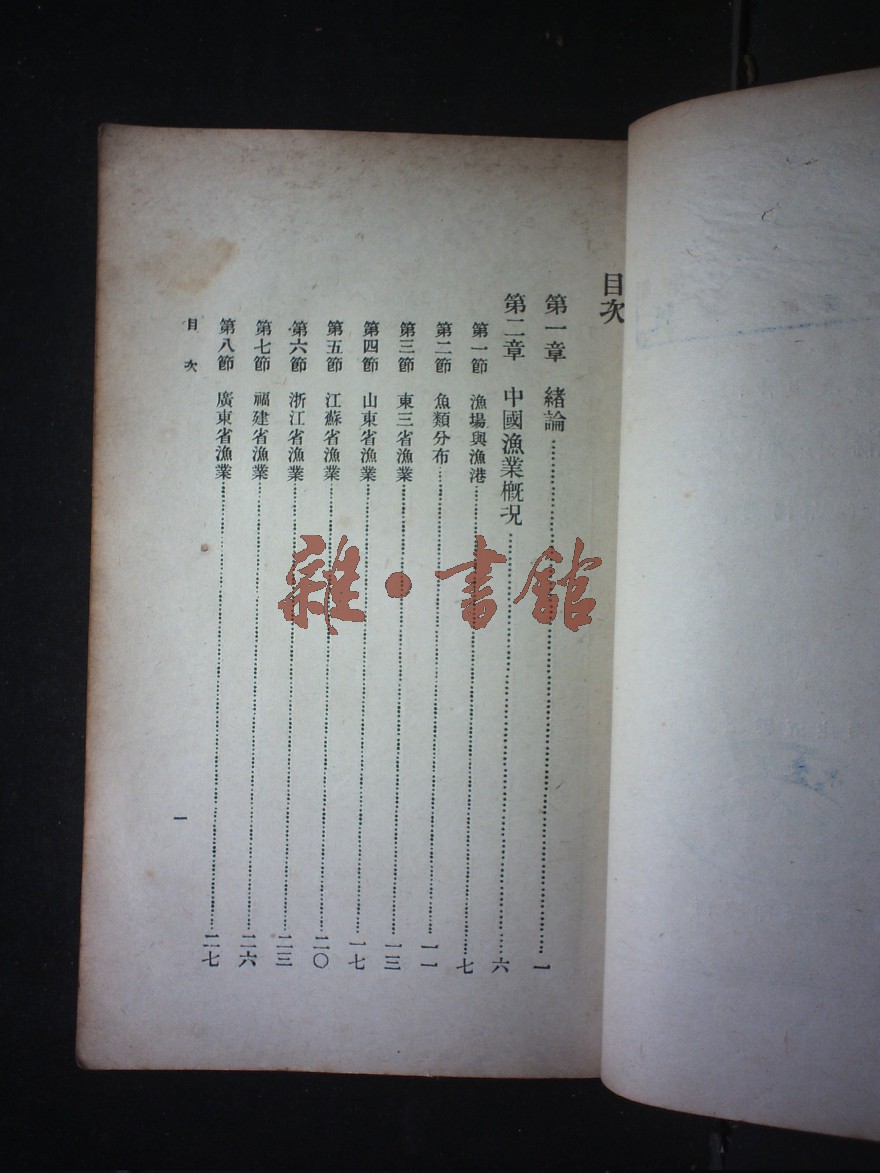 目次
第一章　緒論……一
第二章　中國漁業概況……六
第一節　漁場與漁港……七
第二節　魚類分布……一一
第三節　東三省漁業……一三
第四節　山東省漁業……一七
第五節　江蘇省漁業……二〇
第六節　浙江省漁業……二三
第七節　福建省漁業……二六
第八節　廣東省漁業……二七
目次　一
雜·書館